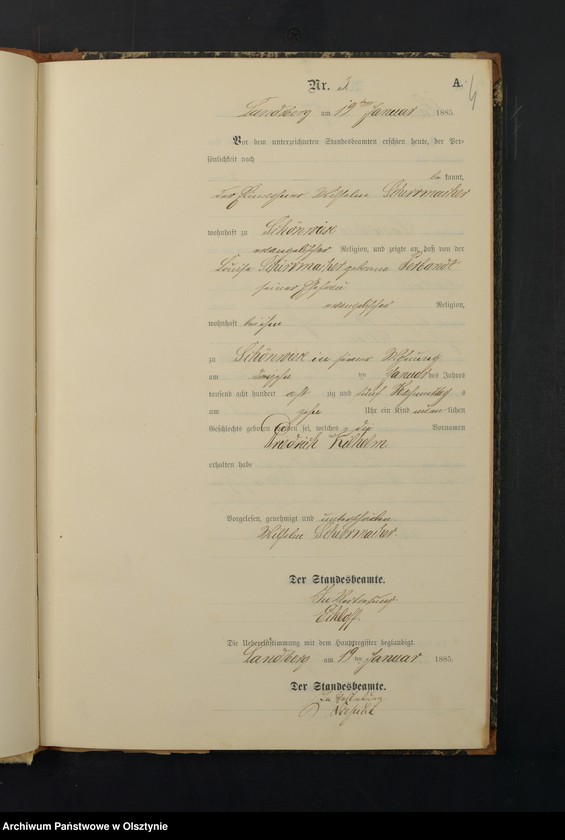 Nr. 3
A.
4
Landsberg am 19ten Januar 1885.
Vor dem unterzeichneten Standesbeamten erschien heute, der Per-
sönlichkeit nach
be kannt,
der Wilhelm Schirrmacher
wohnhaft zu Schönwiese
evangelischer Religion, und zeigte an, daß von der
Schirrmacher geborene
seiner Ehefrau
evangelischer Religion,
wohnhaft bei ihm
zu Schönwiese in seiner Wohnung
am ten Januar des Jahres
tausend acht hundert acht zig und fünf Nachmittags
am zehn Uhr ein Kind männlichen
Geschlechts geboren worden sei, welches die Vornamen
Friedrich Wilhelm
erhalten habe
Vorgelesen, genehmigt und unterschrieben
Wilhelm Schirrmacher.
Der Standesbeamte.
In Vertretung
Die Uebereinstimmung mit dem Hauptregister beglaubigt.
Landsberg am 19ten Januar 1885.
Der Standesbeamte.
In Vertretung
Archiwum Państwowe w Olsztynie